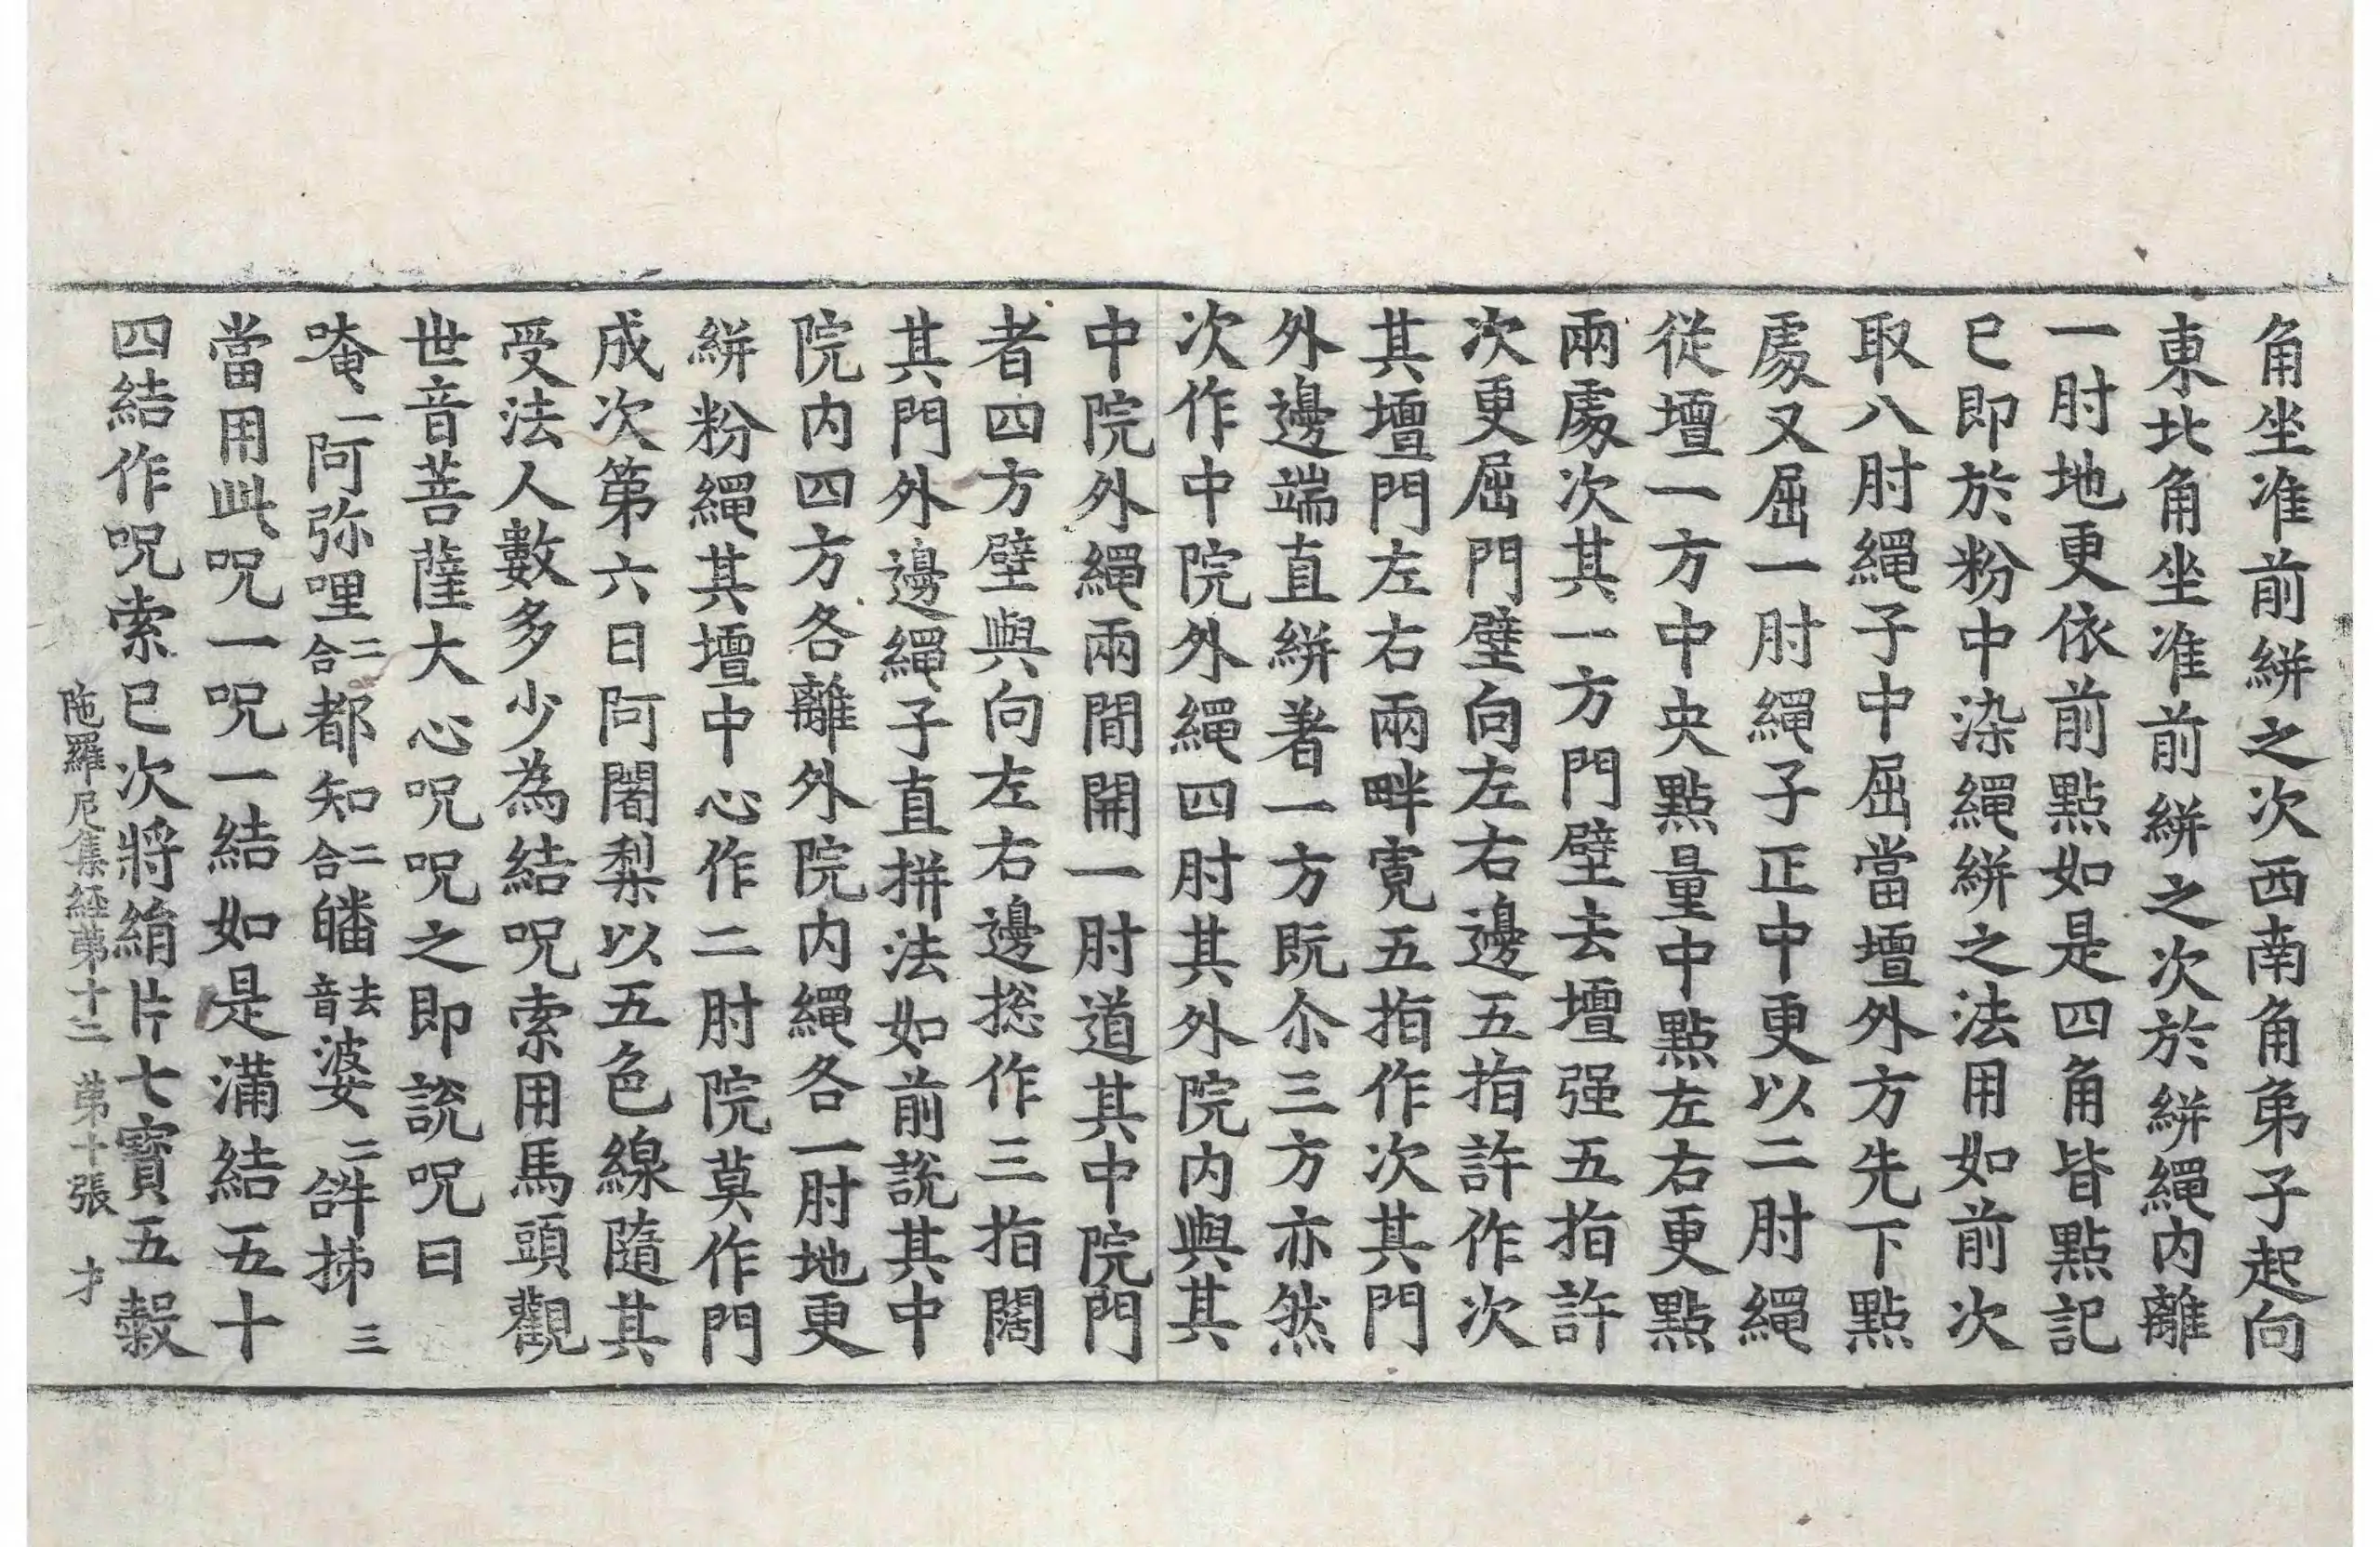 角坐准前絣之次西南角弟子起向
東北角坐准前絣之次於絣繩内離
一肘地更依前點如是四角皆點記
已即於粉中染繩絣之法用如前次
取八肘繩子中屈當壇外方先下點
處又屈一肘繩子正中更以二肘繩
從壇一方中央點量中點左右更點
兩處次其一方門壁去壇强五指許
次更屈門壁向左右邊五指許作次
其壇門左右兩畔寬五指作次其門
外邊端直絣著一方既尒三方亦然
次作中院外繩四肘其外院内與其
中院外繩兩間開一肘道其中院門
者四方壁與向左右邊捴作三指闊
其門外邊繩子直拼法如前說其中
院内四方各離外院内繩各一肘地更
絣粉繩其壇中心作二肘院莫作門
成次第六日阿闍梨以五色線隨其
受法人數多少為結呪索用馬頭觀
世音菩薩大心呪呪之即說呪曰
唵一阿弥哩二合都知二合皤去音婆二𤙖抺三
當用此呪一呪一結如是滿結五十
四結作呪索已次將絹片七寶五穀
陁羅尼集経第十二 第十張 才